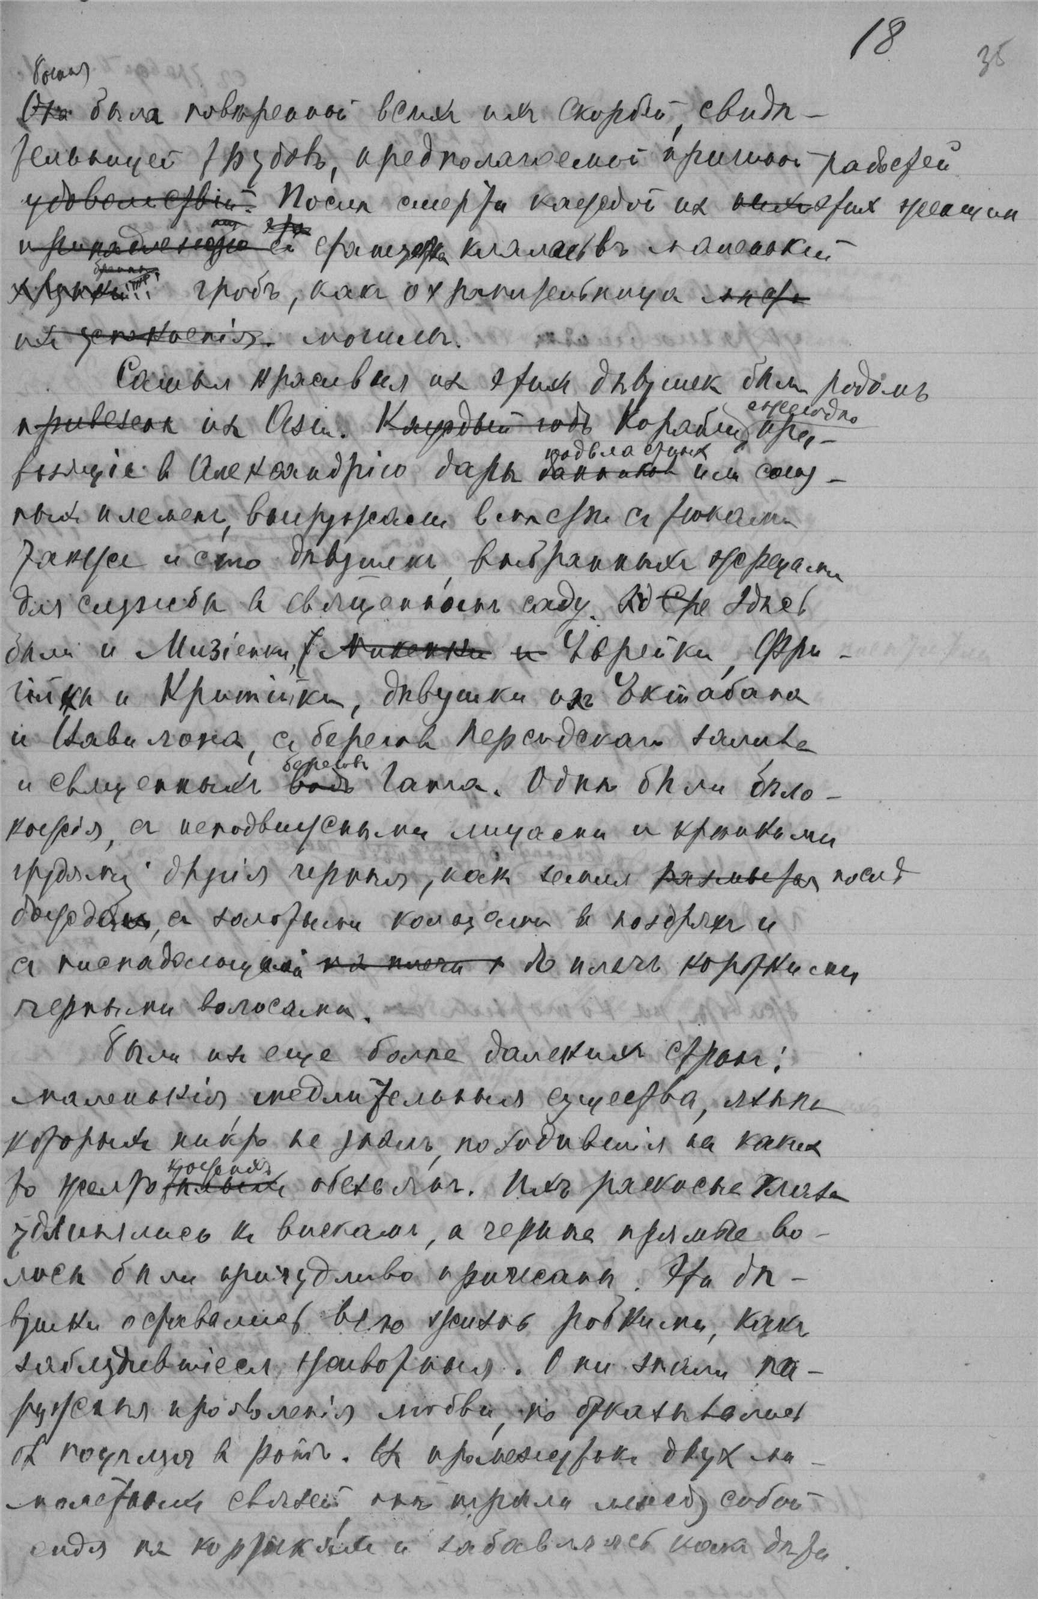 18
35
богиня
Она была повѣренной всѣхъ ихъ скорбей, свидѣ-
тельницей трудовъ, предполагаемой причиной радостей
удовольствій. Послѣ смерти каждой изъ этихъ женщинъ
статуэтка клалась въ маленькій
гробъ, какъ охранительница
ихъ успокоенія. могилы.
Самыя красивыя изъ этихъ дѣвушекъ были родомъ
привезены изъ Азіи. Каждый годъ Корабли, ежегодно при-
возящіе въ Александрію дары данниковъ подвластныхъ или союз-
ныхъ племенъ, выгружали вмѣстѣ съ тюками
также и сто дѣвушекъ, выбранныхъ жрецами
для службы въ священномъ саду. Здѣсь
были и Мизіенки, и Еврейки, Фри-
гійки и Критійки, дѣвушки изъ Экбатана
и Вавилона, съ береговъ Персидскаго залива
и священныхъ водъ береговъ Ганга. Однѣ были бѣло-
кожія, съ неподвижными лицами и крѣпкими
грудями; другія черныя, какъ земля послѣ
дождя, съ золотыми кольцами въ ноздряхъ и
съ ниспадающими на плечи до плечъ короткими
черными волосами.
Были изъ еще болѣе далекихъ странъ:
маленькія, медлительныя существа, языка
которыхъ никто не зналъ, походившія на какихъ
то желтокожихъ обезьянъ. Ихъ раскосые глаза
удлинялись къ вискамъ, а черные прямые во-
лосы были причудливо причесаны. Эти дѣ-
вушки оставались всю жизнь робкими, какъ
заблудившіеся животныя. Они знали на-
ружныя проявленія любви, но отказывались
отъ поцѣлуя въ ротъ. Въ промежуткѣ двухъ ми-
молетныхъ связей онѣ играли между собой
сидя на корточкахъ и забавляясь какъ дѣти.